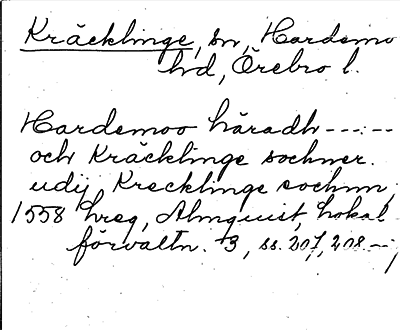 Kräcklinge, sn, Hardemo
hd, Örebro l.
Hardemoo häradh -----
och Kräcklinge sochner.
udij Krecklinge sochnn,
1558 hreg, Almquist, Lokal
förvaltn. 3, ss. 207, 208. –,